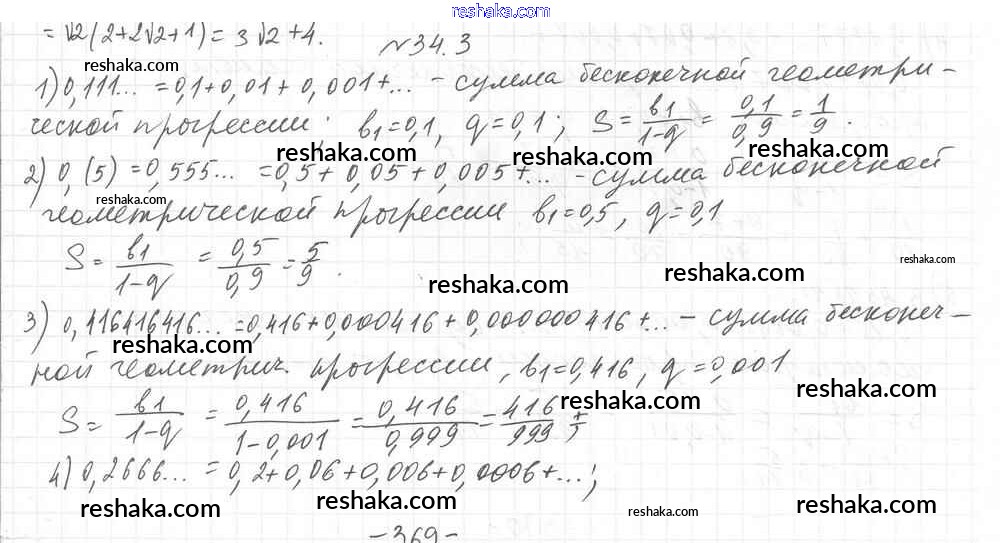 reshaka.com
= √2(2+2√2+1) = 3√2+4. №34.3
reshaka.com
1) 0,111... = 0,1+0,01+0,001+... - сумма бесконечной геометри-
ческой прогрессии; b1=0,1, q=0,1; S = b1/1-q = 0,1/0,9 = 1/9.
reshaka.com reshaka.com
2) 0,(5) = 0,555... = 0,5+0,05+0,005+... - сумма бесконечной
reshaka.com reshaka.com
reshaka.com
геометрической прогрессии b1=0,5, q=0,1
S = b1/1-q = 0,5/0,9 = 5/9.
reshaka.com
reshaka.com reshaka.com
3) 0,416416416... = 0,416+0,000416+0,000000416+... - сумма бесконеч-
reshaka.com reshaka.com
ной геометрич. прогрессии, b1=0,416, q=0,001
reshaka.com reshaka.com
S = b1/1-q = 0,416/1-0,001 = 0,416/0,999 = 416/999;
4) 0,2666... = 0,2+0,06+0,006+0,0006+...;
reshaka.com reshaka.com reshaka.com reshaka.com
-369-